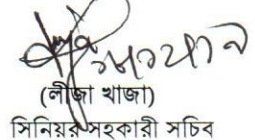 (লীজা খাজা)
সিনিয়র সহকারী সচিব